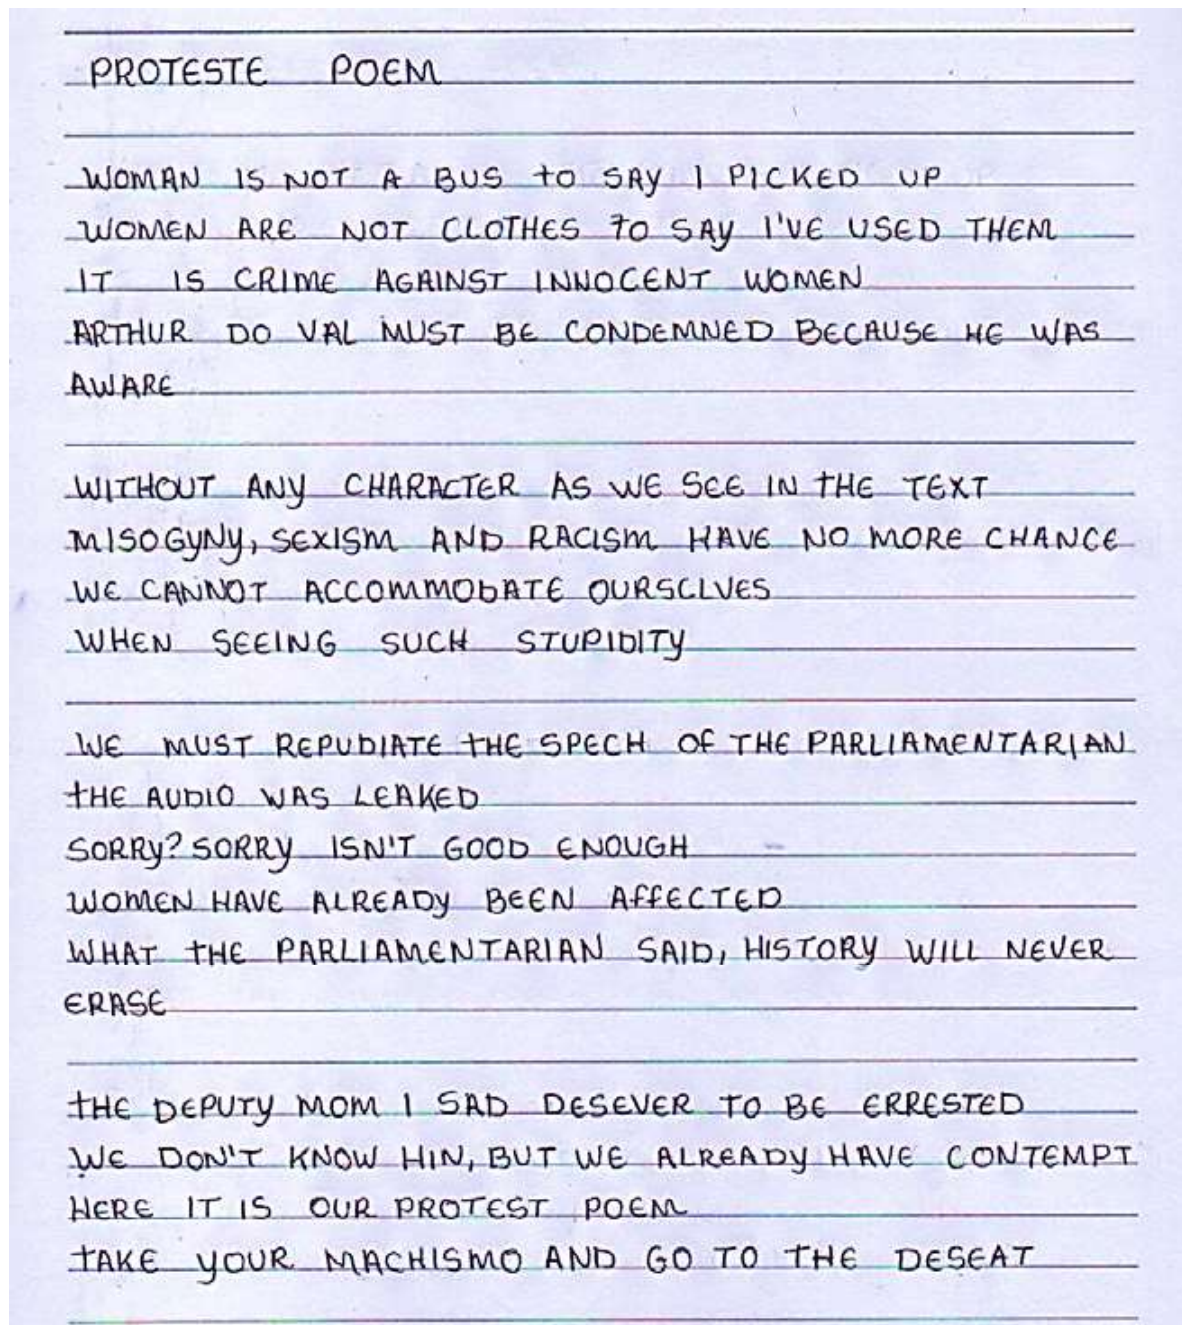 PROTESTE POEM
WOMAN IS NOT A BUS to SAY I PICKED UP
WOMEN ARE NOT CLOTHES to SAY I'VE USED THEM
IT IS CRIME AGAINST INNOCENT WOMEN
ARTHUR DO VAL MUST BE CONDEMNED BECAUSE HE WAS
AWARE
WITHOUT ANY CHARACTER AS WE SEE IN tHE TEXT
MISOGYNY, SEXISM AND RACISM HAVE NO MORE CHANCE
WE CANNOT ACCOMMODATE OURSCLVES
WHEN SEEING SUCH STUPIDITY
WE MUST REPUDIATE tHE SPECH OF THE PARLIAMENTARIAN
tHE AUDIO WAS LEAKED
SORRY? SORRY ISN'T GOOD ENOUGH
WOMEN HAVE ALREADY BEEN AFFECTED
WHAT tHE PARLIAMENTARIAN SAID, HISTORY WILL NEVER
ERASE
tHE DEPUTY MOM I SAD DESEVER TO BE ERRESTED
WE DON'T KNOW HIN, BUT WE ALREADY HAVE CONTEMPT
HERE IT IS OUR PROTEST POEM
tAKE YOUR MACHISMO AND GO TO THE DESEAT